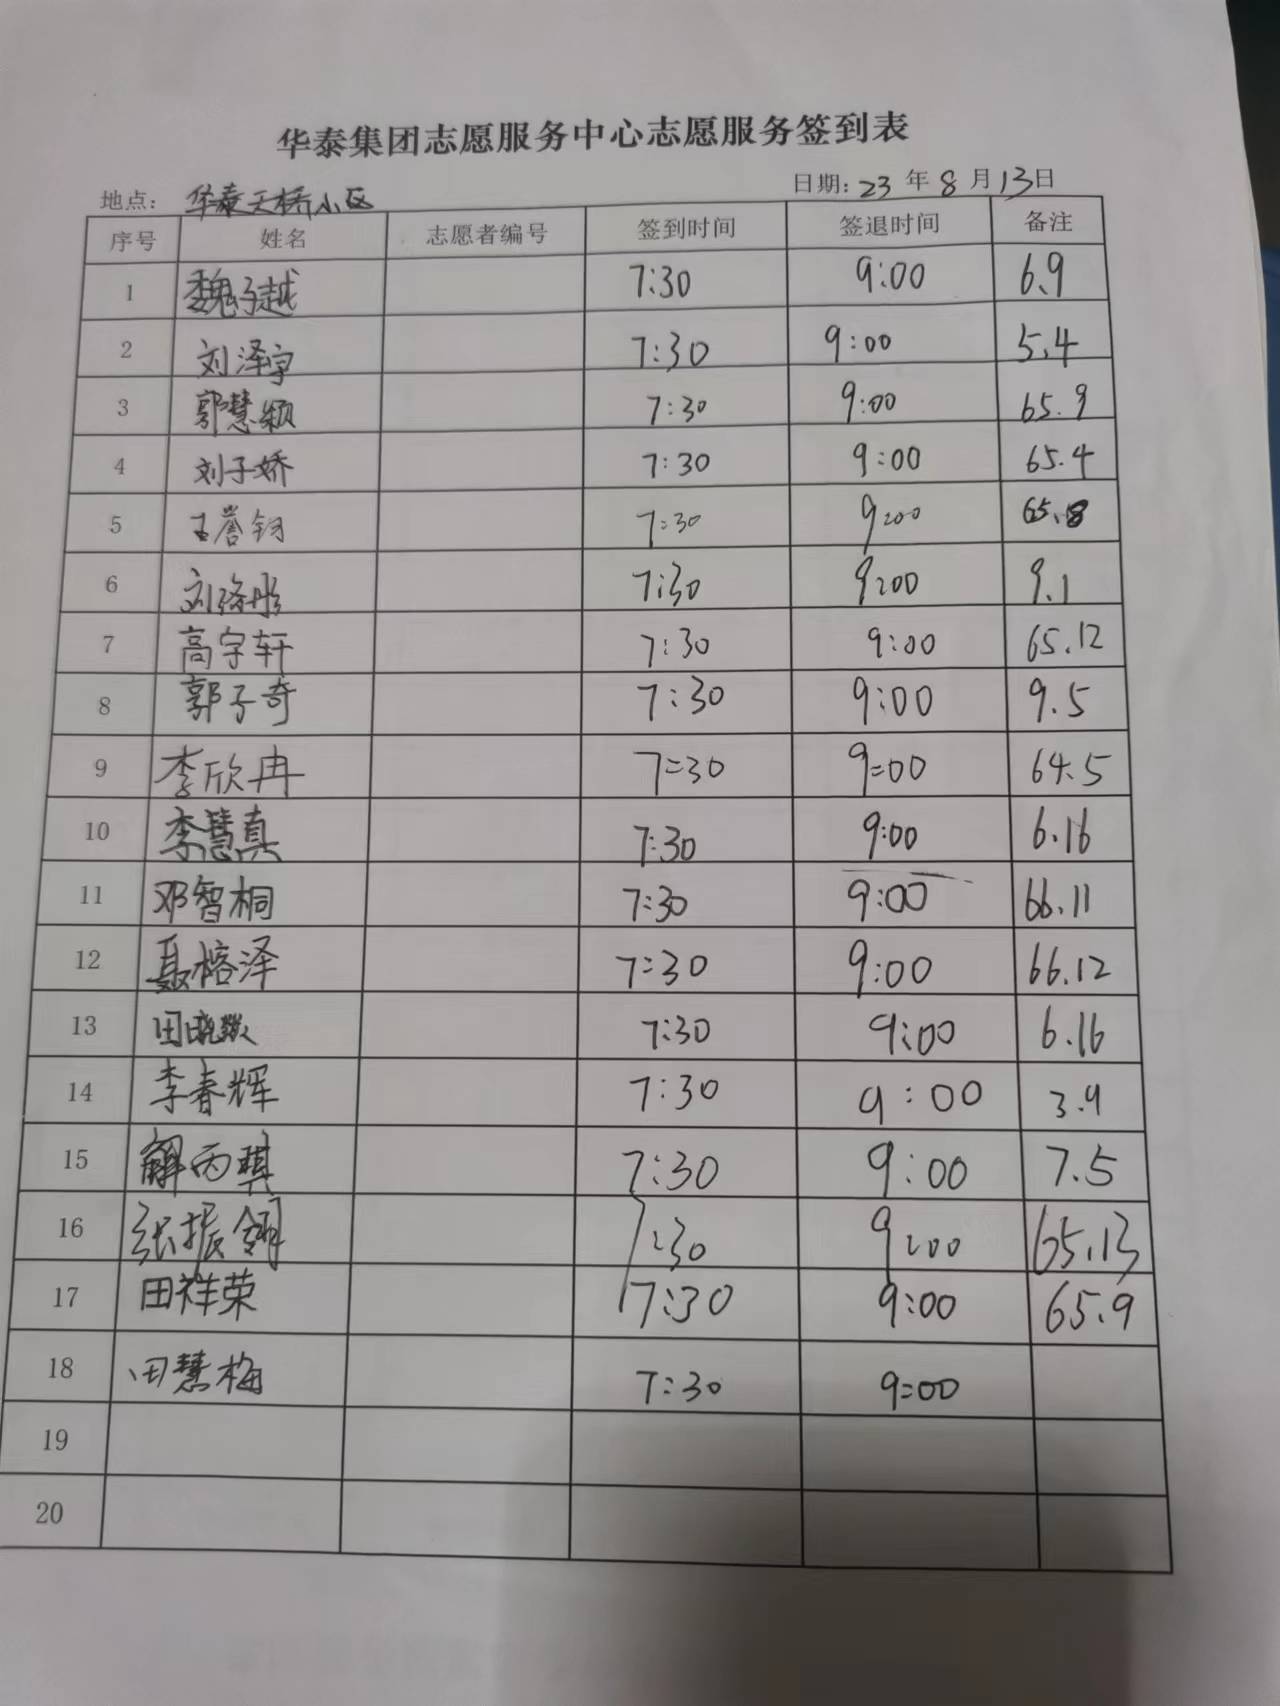 华泰集团志愿服务中心志愿服务签到表
地点：华泰天桥小区 日期：23年8月13日
序号 姓名 志愿者编号 签到时间 签退时间 备注
1 魏子越 7:30 9:00 6.9
2 刘泽宇 7:30 9:00 5.4
3 郭慧颖 7:30 9:00 65.9
4 刘子娇 7:30 9:00 65.4
5 王誉钧 7:30 9:00 65.8
6 7:30 9:00 9.1
7 高宇轩 7:30 9:00 65.12
8 郭子奇 7:30 9:00 9.5
9 李欣冉 7:30 9:00 64.5
10 李慧真 7:30 9:00 6.16
11 邓智桐 7:30 9:00 66.11
12 聂榕泽 7:30 9:00 66.12
13 7:30 9:00 6.16
14 李春辉 7:30 9:00 3.9
15 解丙琪 7:30 9:00 7.5
16 张振翎 7:30 9:00 65.13
17 田祥荣 7:30 9:00 65.9
18 田慧梅 7:30 9:00
19
20